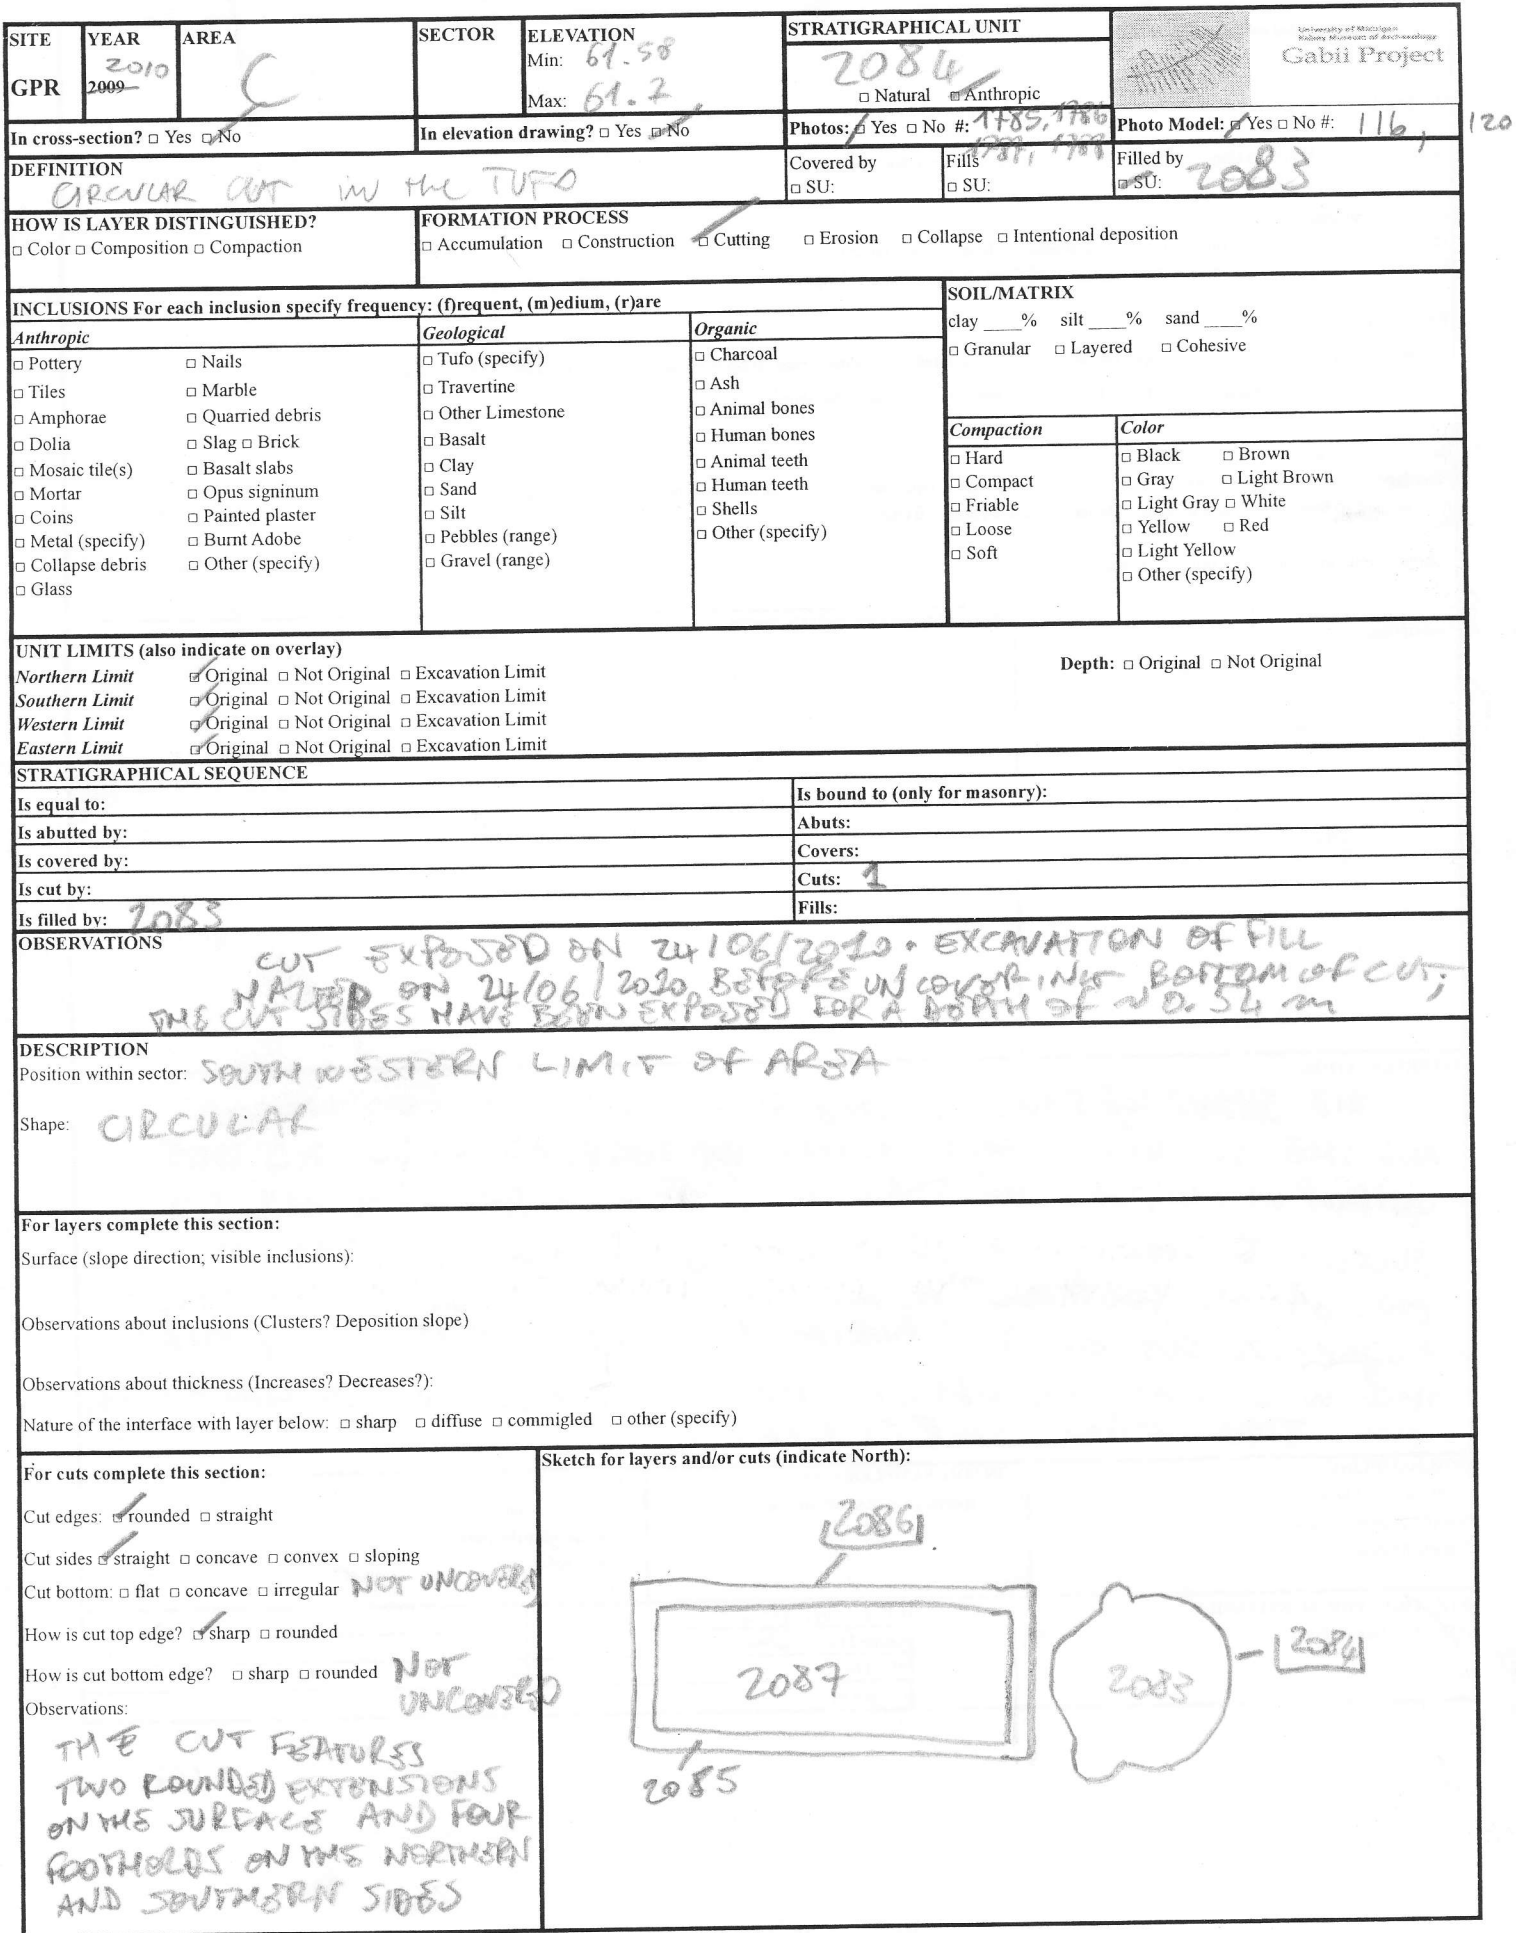 SITE YEAR AREA SECTOR ELEVATION STRATIGRAPHICAL UNIT
University of Michigan
Kelsey Museum of Archaeology
Gabii Project
GPR 2010 2009 C Min: 61.58 2084
Max: 61.2 □ Natural ☑ Anthropic
In cross-section? □ Yes ☑ No In elevation drawing? □ Yes ☑ No Photos: ☑ Yes □ No #: 1785, 1786 Photo Model: ☑ Yes □ No #: 116, 120
1787, 1788
DEFINITION Covered by Fills Filled by
CIRCULAR CUT IN the TUFO □ SU: □ SU: ☑ SU: 2083
HOW IS LAYER DISTINGUISHED? FORMATION PROCESS
□ Color □ Composition □ Compaction □ Accumulation □ Construction ☑ Cutting □ Erosion □ Collapse □ Intentional deposition
INCLUSIONS For each inclusion specify frequency: (f)requent, (m)edium, (r)are
Anthropic
□ Pottery □ Nails
□ Tiles □ Marble
□ Amphorae □ Quarried debris
□ Dolia □ Slag □ Brick
□ Mosaic tile(s) □ Basalt slabs
□ Mortar □ Opus signinum
□ Coins □ Painted plaster
□ Metal (specify) □ Burnt Adobe
□ Collapse debris □ Other (specify)
□ Glass
Geological
□ Tufo (specify)
□ Travertine
□ Other Limestone
□ Basalt
□ Clay
□ Sand
□ Silt
□ Pebbles (range)
□ Gravel (range)
Organic
□ Charcoal
□ Ash
□ Animal bones
□ Human bones
□ Animal teeth
□ Human teeth
□ Shells
□ Other (specify)
SOIL/MATRIX
clay ____% silt ____% sand ____%
□ Granular □ Layered □ Cohesive
Compaction
□ Hard
□ Compact
□ Friable
□ Loose
□ Soft
Color
□ Black □ Brown
□ Gray □ Light Brown
□ Light Gray □ White
□ Yellow □ Red
□ Light Yellow
□ Other (specify)
UNIT LIMITS (also indicate on overlay)
Northern Limit ☑ Original □ Not Original □ Excavation Limit Depth: □ Original □ Not Original
Southern Limit ☑ Original □ Not Original □ Excavation Limit
Western Limit ☑ Original □ Not Original □ Excavation Limit
Eastern Limit ☑ Original □ Not Original □ Excavation Limit
STRATIGRAPHICAL SEQUENCE
Is equal to: Is bound to (only for masonry):
Is abutted by: Abuts:
Is covered by: Covers:
Is cut by: Cuts: 1
Is filled by: 2083 Fills:
OBSERVATIONS
CUT EXPOSED ON 24/06/2010. EXCAVATION OF FILL
HALTED ON 24/06/2010 BEFORE UNCOVERING BOTTOM OF CUT;
THE CUT SIDES HAVE BEEN EXPOSED FOR A DEPTH OF ~ 0.54 m
DESCRIPTION
Position within sector: SOUTH WESTERN LIMIT OF AREA
Shape: CIRCULAR
For layers complete this section:
Surface (slope direction; visible inclusions):
Observations about inclusions (Clusters? Deposition slope)
Observations about thickness (Increases? Decreases?):
Nature of the interface with layer below: □ sharp □ diffuse □ commigled □ other (specify)
For cuts complete this section:
Cut edges: ☑ rounded □ straight
Cut sides ☑ straight □ concave □ convex □ sloping
Cut bottom: □ flat □ concave □ irregular NOT UNCOVERED
How is cut top edge? ☑ sharp □ rounded
How is cut bottom edge? □ sharp □ rounded NOT
UNCOVERED
Observations:
THE CUT FEATURES
TWO ROUNDED EXTENSIONS
ON THE SURFACE AND FOUR
FOOTHOLDS ON THE NORTHERN
AND SOUTHERN SIDES
Sketch for layers and/or cuts (indicate North):
2086
2084
2087
2083
2085